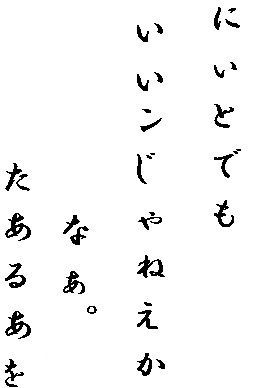 にいとでも
いいンじゃねえか
なぁ。
たあるあを